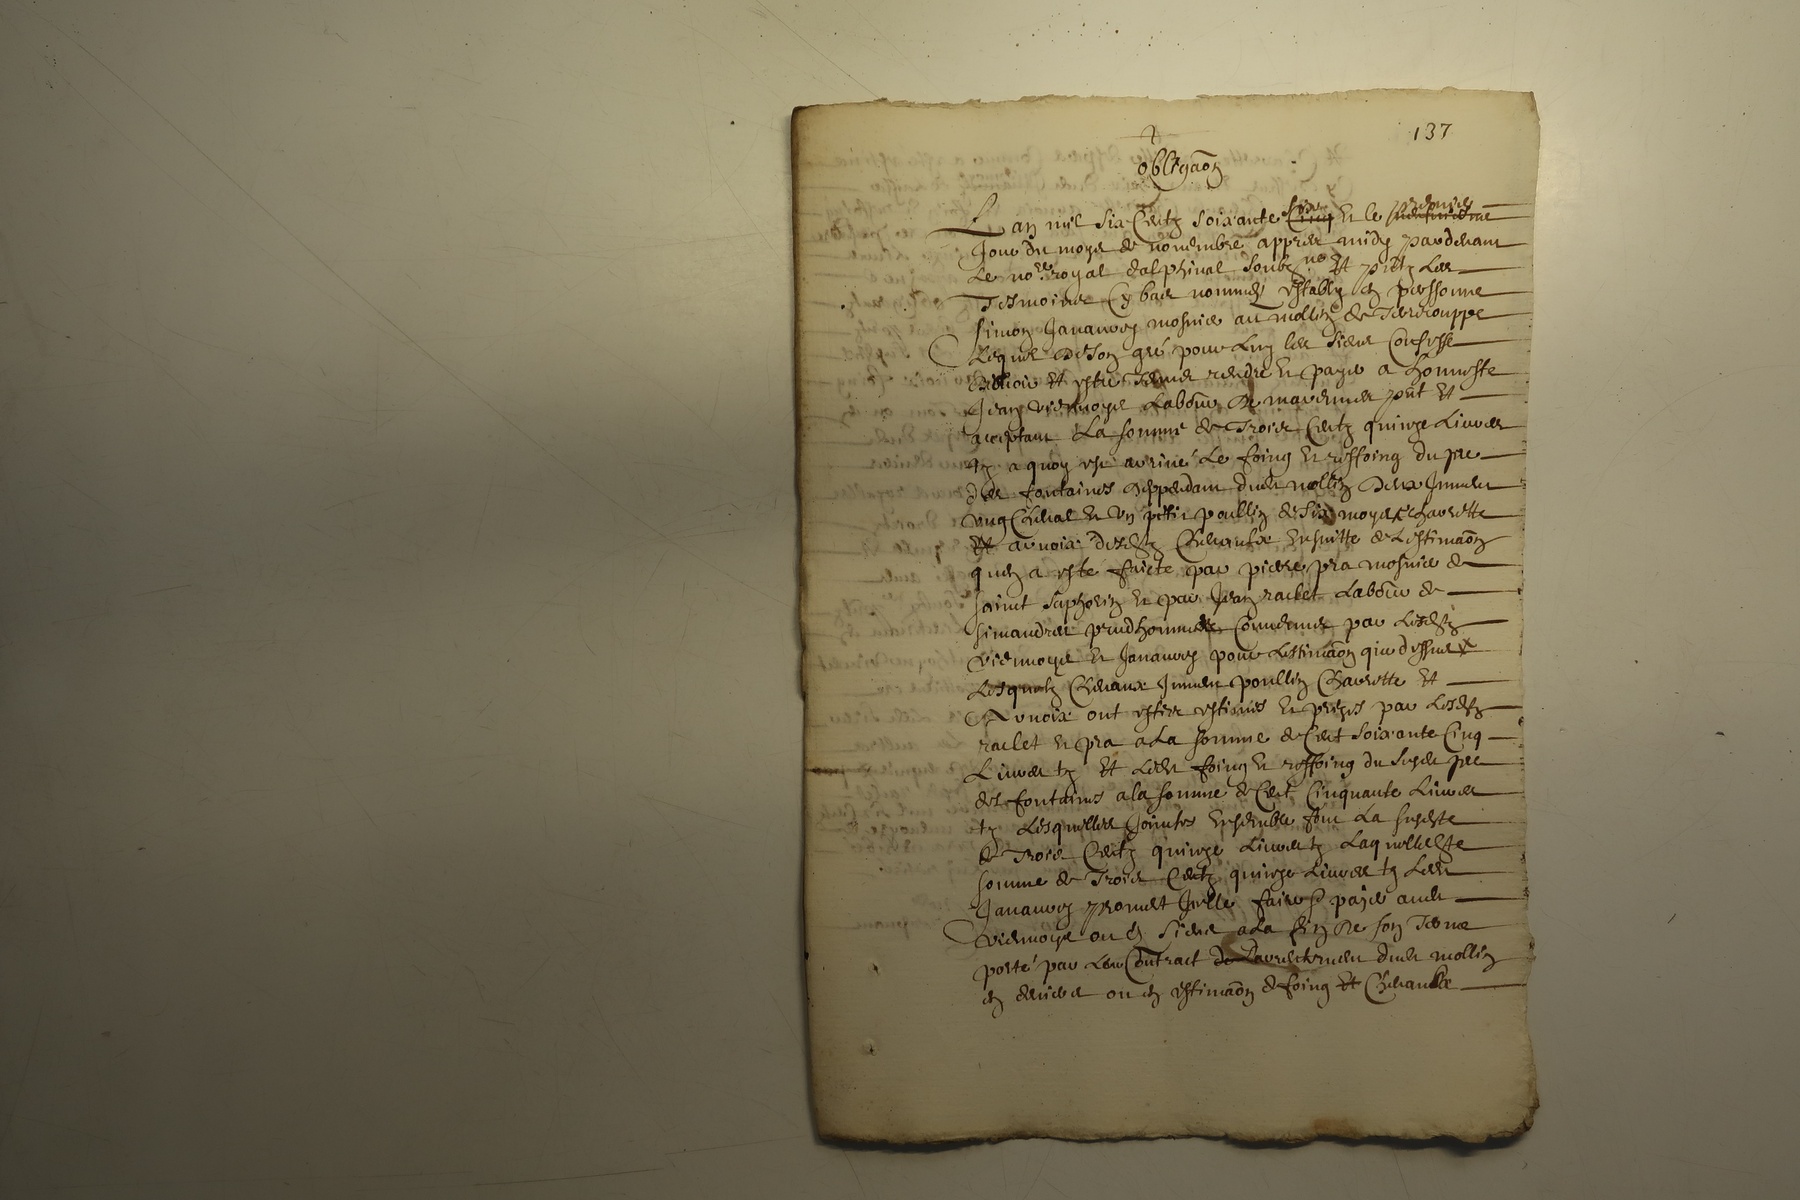 137
obligaon
L an mil six Centz soixante six Cinq et le
Jour du moys de novembre appres midy pardevant
Le no.re royal dalphinal soubz.ne Et pntz Les
Tesmoins Cy bas nommes estably en perssonne
simon Janauoy mosnier au mollin de
Lequel de son gré pour Luy les siens Confesse
debvoir Et estre Tenu rendre et payer a honneste
Jean viennoys Labour de marennes pnt Et
acceptant La somme de Trois Centz quinze Livres
tz a quoy est arrivé Le foing et reffoing du pre
des fontaines deppendant dudt mollin deux Jumen
ung Cheval et un petit poullin de six moys Charette
Et arnoix desdtz Chevaulx Ensuitte de Lestimaon
quen a este faicte par pierre pra mosnier de
sainct saphorin et par Jean raclet Labour de
simandres prudhommes Convenus par Lesdtz
viennoys et Janauoy pour Lestimaon que dessus
Lesquelz Chevaux Jumen poullin Charette Et
Arnoix ont estes estimes et prises par Lesdtz
raclet et pra a La somme de Cent soixante Cinq
Livres tz Et Ledt foing et reffoing du susdt pre
des fontaines a la somme de Cent Cinquante Livres
tz Lesquelles Jointes Ensemble font La susdte
de Trois Centz quinze Livres tz Laquelle dte
somme de Trois Centz quinze Livres tz Ledt
Janauoy promet Icelle faire payer audt
viennoys ou es siens a La fin de son Terme
porté par Leur Contract de dudt mollin
en deniers ou en estimaon de foing Et Chevaulx